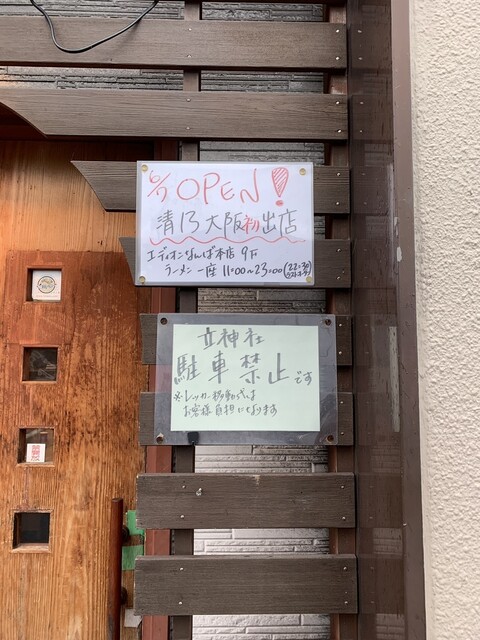 6/7 OPEN!
清乃大阪初出店
エディオンなんば本店 9F
ラーメン一座 11:00〜23:00(22:30ラストオーダー)
立神社
駐車禁止です
※レッカー移動代は
お客様負担になります